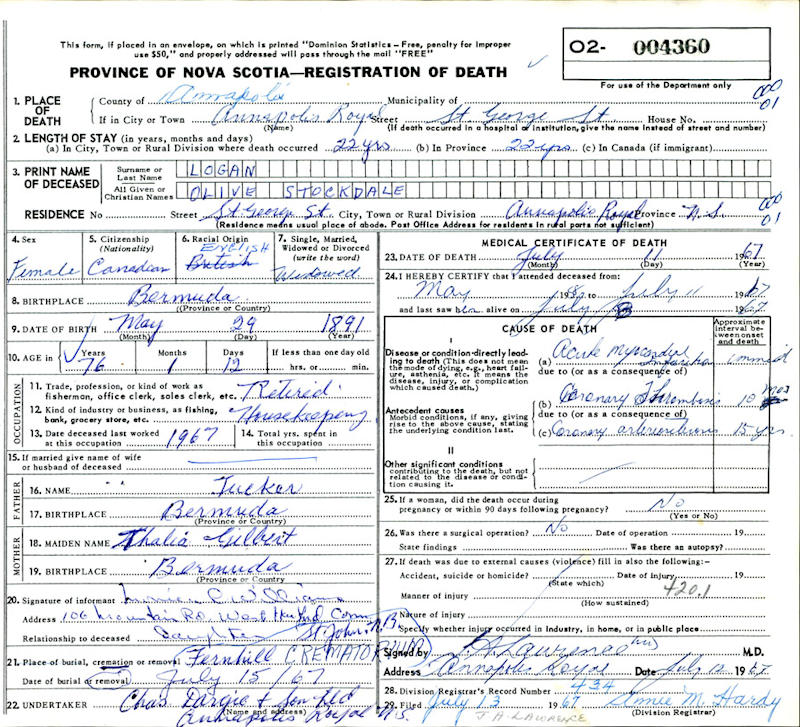 This form, if placed in an envelope, on which is printed "Dominion Statistics – Free, penalty for improper
use $50," and properly addressed will pass through the mail "FREE"
O2- 004360
PROVINCE OF NOVA SCOTIA—REGISTRATION OF DEATH
For use of the Department only
1. PLACE OF DEATH
County of Annapolis Municipality of 000
If in City or Town Annapolis Royal Street St. George St House No. 01
(Name) (If death occurred in a hospital or institution, give the name instead of street and number)
2. LENGTH OF STAY (in years, months and days)
(a) In City, Town or Rural Division where death occurred 22 yrs (b) In Province 22 yrs (c) In Canada (if immigrant)
3. PRINT NAME OF DECEASED
Surname or Last Name LOGAN
All Given or Christian Names OLIVE STOCKDALE
RESIDENCE No Street St George St. City, Town or Rural Division Annapolis Royal Province N.S. 000 01
(Residence means usual place of abode. Post Office Address for residents in rural parts not sufficient)
4. Sex Female
5. Citizenship (Nationality) Canadian
6. Racial Origin ENGLISH British
7. Single, Married, Widowed or Divorced (write the word) Widowed
8. BIRTHPLACE Bermuda
(Province or Country)
9. DATE OF BIRTH May 29 1891
(Month) (Day) (Year)
10. AGE in Years 76 Months 1 Days 12 If less than one day old hrs. or min.
OCCUPATION
11. Trade, profession, or kind of work as fisherman, office clerk, sales clerk, etc. Retired
12. Kind of industry or business, as fishing, bank, grocery store, etc. Housekeeping
13. Date deceased last worked at this occupation 1967
14. Total yrs. spent in this occupation
15. If married give name of wife or husband of deceased
FATHER
16. NAME Tucker
17. BIRTHPLACE Bermuda
(Province or Country)
MOTHER
18. MAIDEN NAME Thalia Gilbert
19. BIRTHPLACE Bermuda
(Province or Country)
20. Signature of informant
Address 106 Mountain Rd. West Hartford Conn
Relationship to deceased Daughter St John, N.B.
21. Place of burial, cremation or removal Fernhill CREMATORIUM
Date of burial or removal July 15/67
22. UNDERTAKER Chas Dargie & Son Ltd
(Name and address)
Annapolis Royal N.S.
MEDICAL CERTIFICATE OF DEATH
23. DATE OF DEATH July 11 1967
(Month) (Day) (Year)
24. I HEREBY CERTIFY that I attended deceased from:
May 19 to July 11 1967
and last saw her alive on July 1967
CAUSE OF DEATH
Approximate interval between onset and death
I
Disease or condition directly leading to death (This does not mean the mode of dying, e.g., heart failure, asthenia, etc. It means the disease, injury, or complication which caused death.)
(a) Acute myocardial infarction immed
due to (or as a consequence of)
Antecedent causes
Morbid conditions, if any, giving rise to the above cause, stating the underlying condition last.
(b) Coronary Thrombosis 10 mos
due to (or as a consequence of)
(c) Coronary arteriosclerosis 15 yrs.
II
Other significant conditions contributing to the death, but not related to the disease or condition causing it.
25. If a woman, did the death occur during pregnancy or within 90 days following pregnancy? No
(Yes or No)
26. Was there a surgical operation? No Date of operation 19
State findings Was there an autopsy?
27. If death was due to external causes (violence) fill in also the following:–
Accident, suicide or homicide? Date of injury 19
(State which)
Manner of injury 420.1
(How sustained)
Nature of injury
Specify whether injury occurred in industry, in home, or in public place
Signed by Lawrence M.D.
Address Annapolis Royal Date July 12 1967
28. Division Registrar's Record Number 434
29. Filed July 13 1967 Annie M. Hardy
(Division Registrar)
J A LAWRENCE